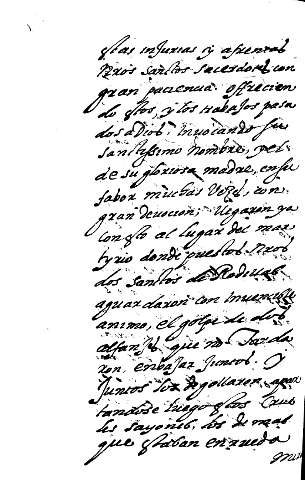 estas injurias y afrentas
nros sanctos sacerdotes con
gran paciencia offrecien
do estos, y los trabajos pasa
dos a dios, inuocando su
sanctissimo nombre, y el
de su gloriosa madre, en su
fabor muchas veces, con
gran deuocion; llegaron ya
con esto al lugar del mar
tyrio donde puestos nros
dos sanctos de Rodillas
aguardaron con inuencible
animo, el golpe de dos
alfanjes que no tarda
ron, en bajar juntos. y
juntos los degollaron, apar
tandose luego estos crue
les sayones, los demas
que estaban en rueda